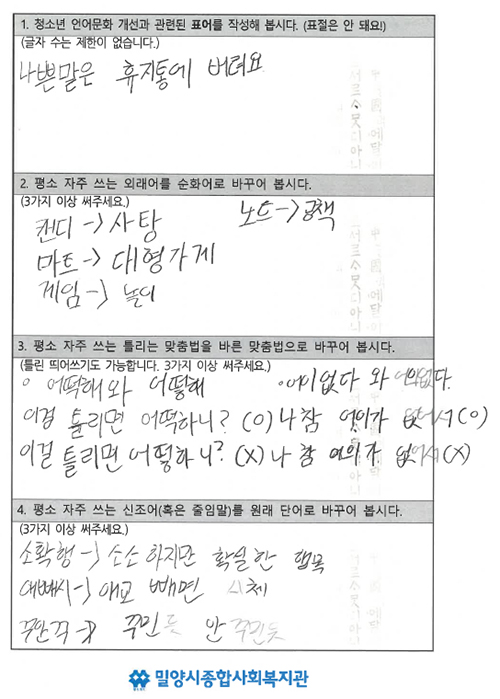 1. 청소년 언어문화 개선과 관련된 표어를 작성해 봅시다. (표절은 안 돼요!)
(글자 수는 제한이 없습니다.)
나쁜말은 휴지통에 버려요
2. 평소 자주 쓰는 외래어를 순화어로 바꾸어 봅시다.
(3가지 이상 써주세요.)
캔디->사탕 노트->공책
마트->대형가게
게임->놀이
3. 평소 자주 쓰는 틀리는 맞춤법을 바른 맞춤법으로 바꾸어 봅시다.
(틀린 띄어쓰기도 가능합니다. 3가지 이상 써주세요.)
어떡해와 어떻해 ·어이없다 와 어의없다.
이걸 틀리면 어떡하니? (O) 나참 어이가 없어서(O)
이걸 틀리면 어떻하니? (X) 나 참 어의가 없어서(X)
4. 평소 자주 쓰는 신조어(혹은 줄임말)를 원래 단어로 바꾸어 봅시다.
(3가지 이상 써주세요.)
소확행->소소하지만 확실한 행복
애빼시->애교 빼면 시체
꾸안꾸-> 꾸민듯 안 꾸민듯
밀양시종합사회복지관